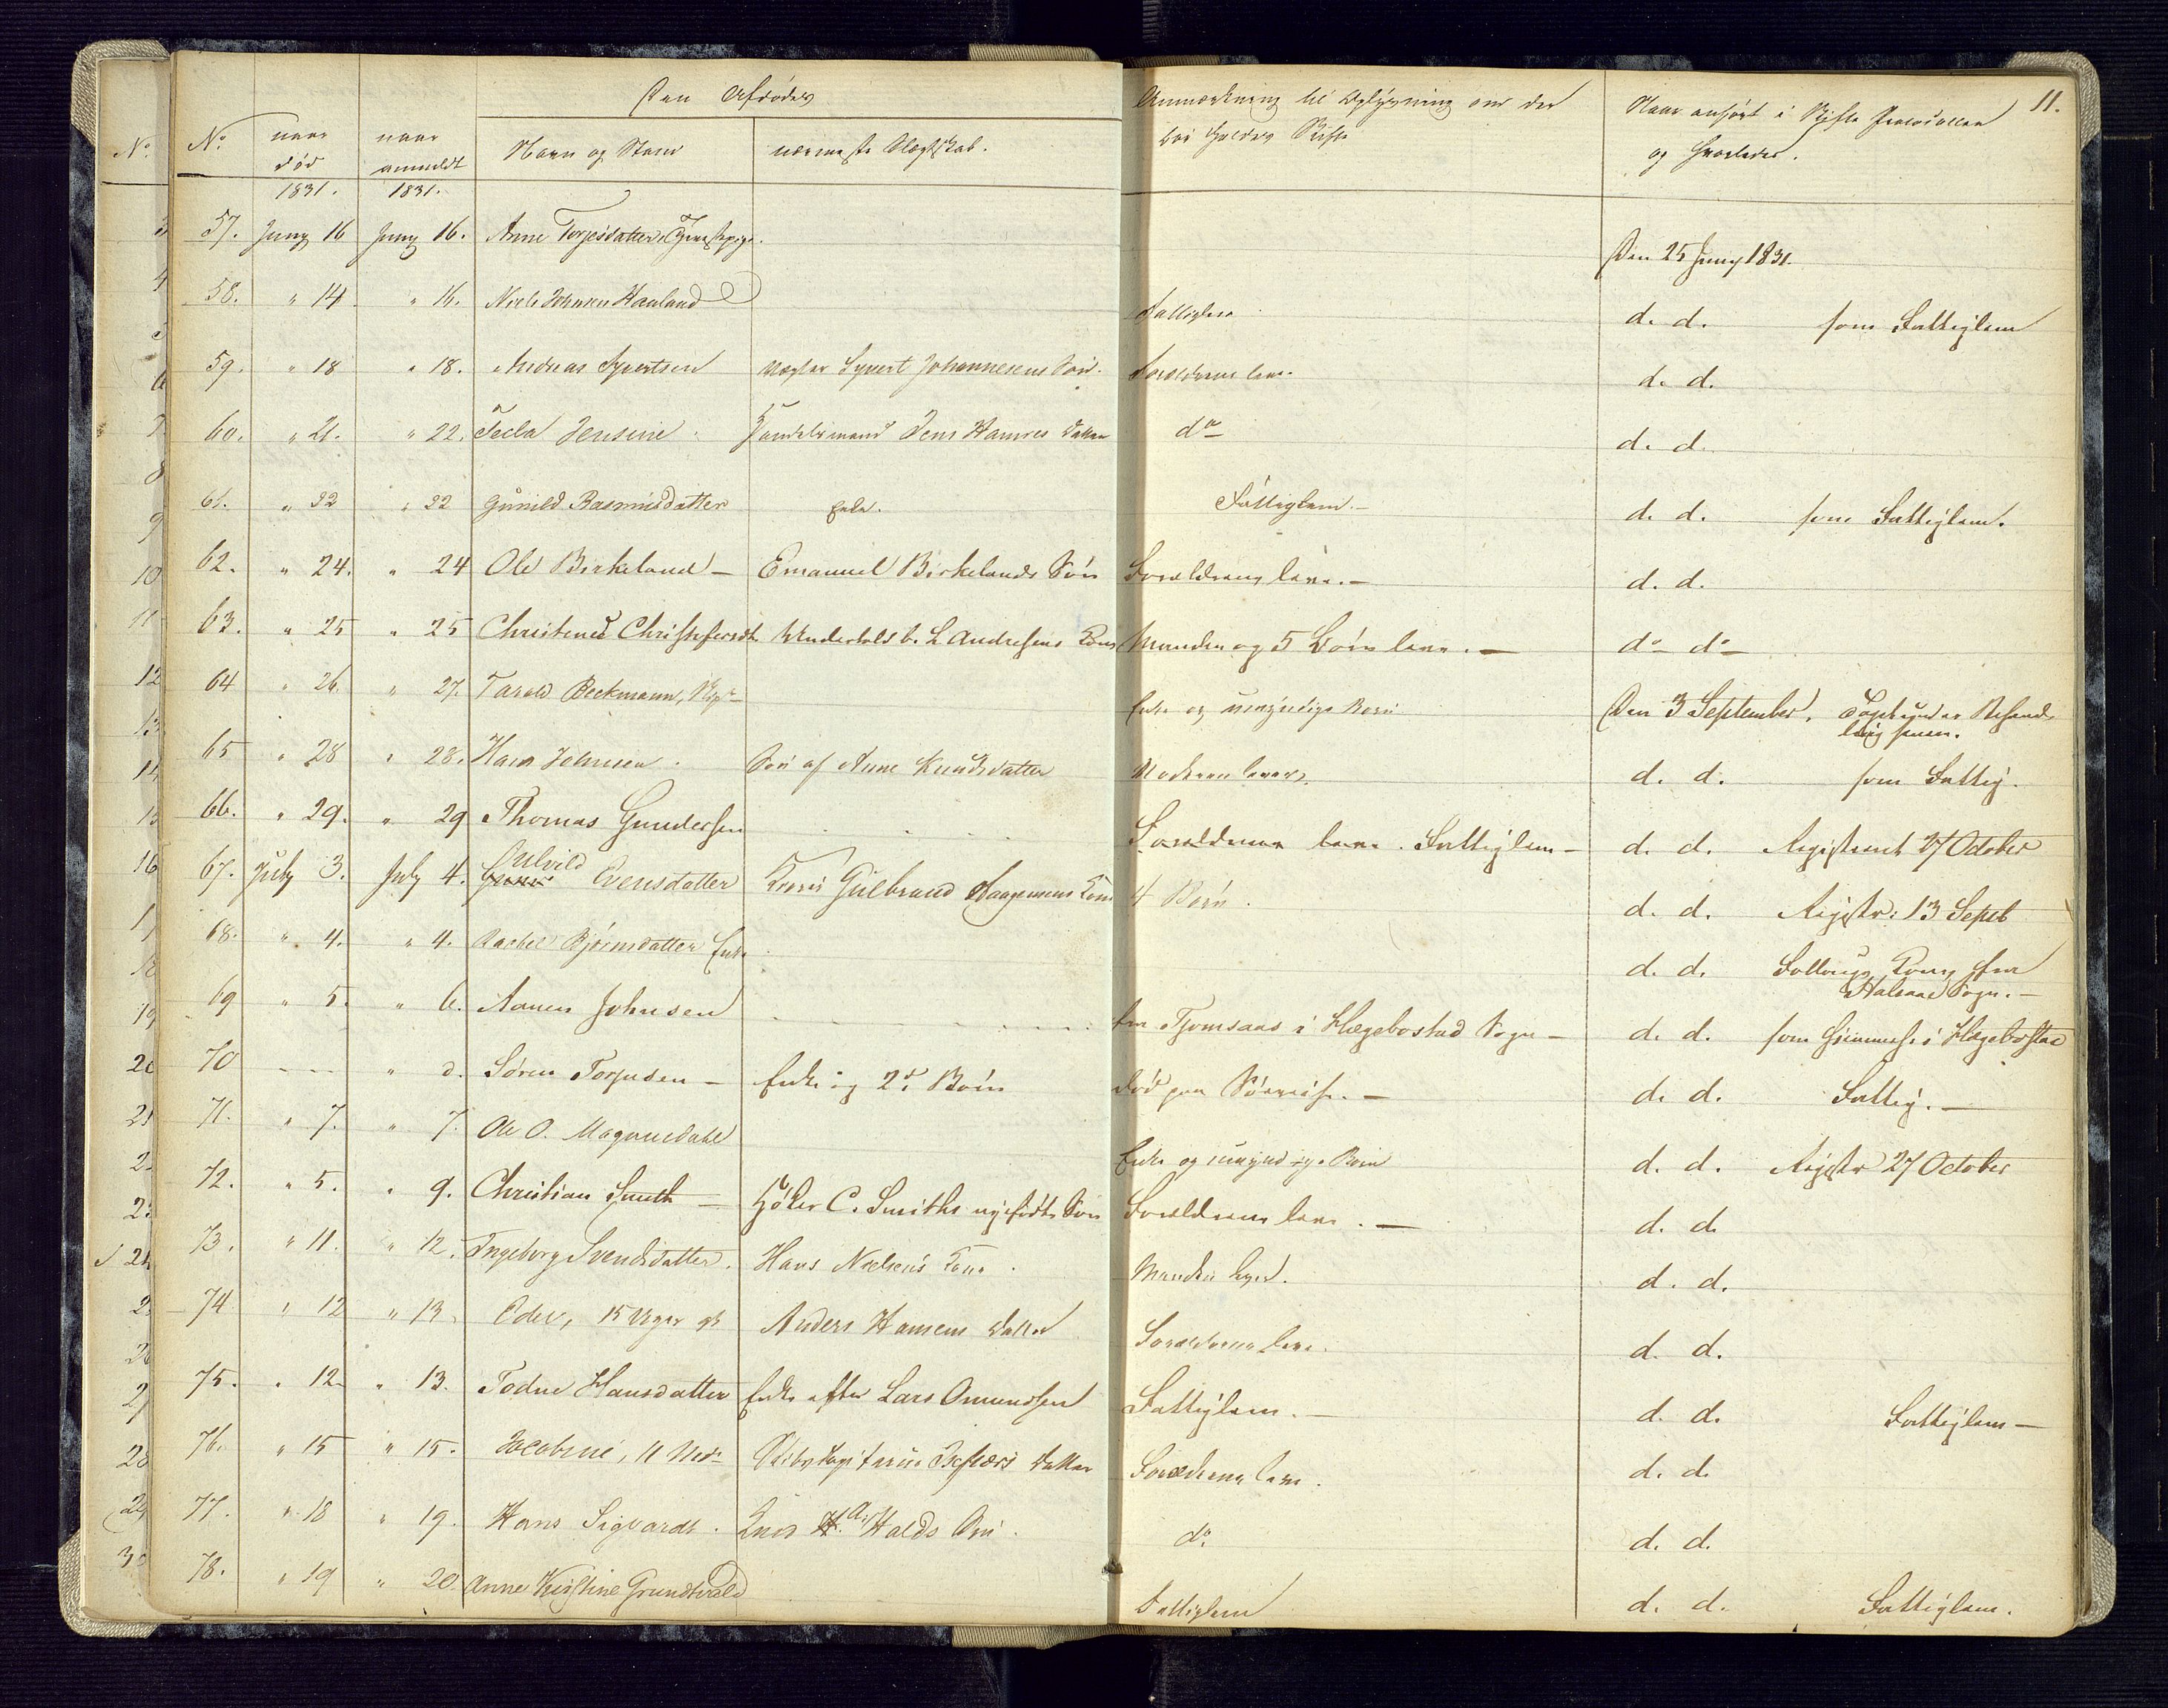 11.
Den Afdødes
No. naar død naar anmeldt Navn og Stand nærmeste Slægtskab. Anmærkning til Oplysning om der bør holdes Skifte Naar anført i Skifte Protocollen og hvorledes.
1831. 1831.
57. Juny 16 Juny 16. Anne Torjesdatter Tjenestepige. Den 25 Juny 1831.
58. " 14 " 16. Niels Johnsen Hauland Fattiglem d. d. som Fattiglem
59. " 18 " 18. Andreas Syvertsen Vægter Syvert Johannesens Søn. Forældrene leve. d. d.
60. " 21. " 22. Tecla Jensine Handelsmand Jens Hansens Datter do d. d.
61. " 22 " 22 Gunild Rasmusdatter Enke. Fattiglem.- d. d. som Fattiglem.
62. " 24. " 24 Ole Birkeland - Emanuel Birkelands Søn Forældrene leve.- d. d.
63. " 25 " 25 Christense Christofersdtr Underfoldb. L Andresens Kone Manden og 5 Børn leve.- do do
64 " 26. " 27. Tarald Beckmann, Enke og umyndige Børn Den 3 September.
65 " 28 " 28. Hans Johnsen. Søn af Anne Knudsdatter Moderen lever. d. d. som Fattig.
66. " 29. " 29 Thomas Gundersen Forældrene leve. Fattiglem- d. d. Registreret 27 October
67. July 3. July 4. Ulvild Evensdatter Gulbrand Aagensens Kone 4 Børn. d. d. Registr: 13 Septb
68. " 4. " 4. Rachel Bjørnsdatter Enke d. d. Kone fra Halsaae Sogn.-
69 " 5. " 6. Aanen Johnsen fra Tjomsaas i Hægebostad Sogn- d. d. som hiemme i Hægebostad
70 " d. Søren Torjusen - Enke og 2de Børn død paa Søereise.- d. d. Fattig.-
71. " 7. " 7. Ole O. Mognedahl Enke og umyndige Børn d. d. Registr 27 October
72. " 5. " 9. Christian Smith - Høker C. Smiths nyefødte Søn Forældrene leve.- d. d.
73. " 11. " 12. Ingeborg Svendsdatter. Hans Nielsens Kone. Manden lever. d. d.
74 " 12 " 13. Odel, 15 Uger gl Anders Hansens Datter Forældrene leve. d. d.
75. " 12. " 13. Todne Hansdatter Enke efter Lars Omundsen Fattiglem.- d. d. Fattiglem-
76. " 15 " 15. Jacobine, 11 Mdr Datter Forældrene leve. d. d.
77. " 18 " 19. Hans Sigvardt. A. Halds Søn. do. d. d.
78. " 19 " 20 Anne Kirstine Grundtvald Fattiglem d. d. Fattiglem.